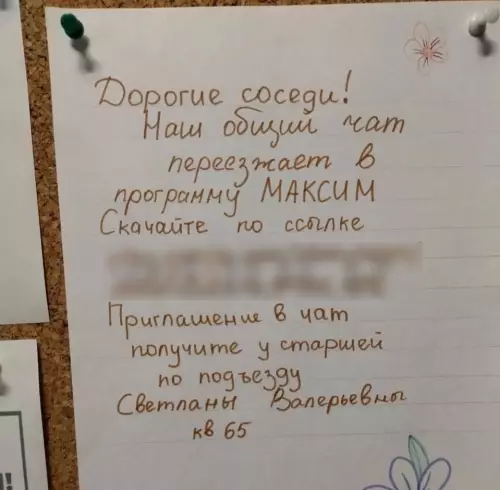 Дорогие соседи!
Наш общий чат
переезжает в
программу МАКСИМ
Скачайте по ссылке
Приглашение в чат
получите у старшей
по подъезду
Светланы Валерьевны
кв 65